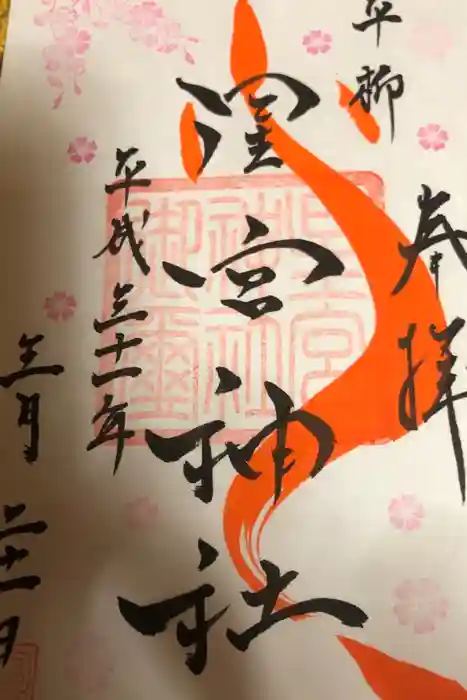 平柳
奉拝
星宮神社
平成三十一年
三月二十一日
星宮
神社
御璽